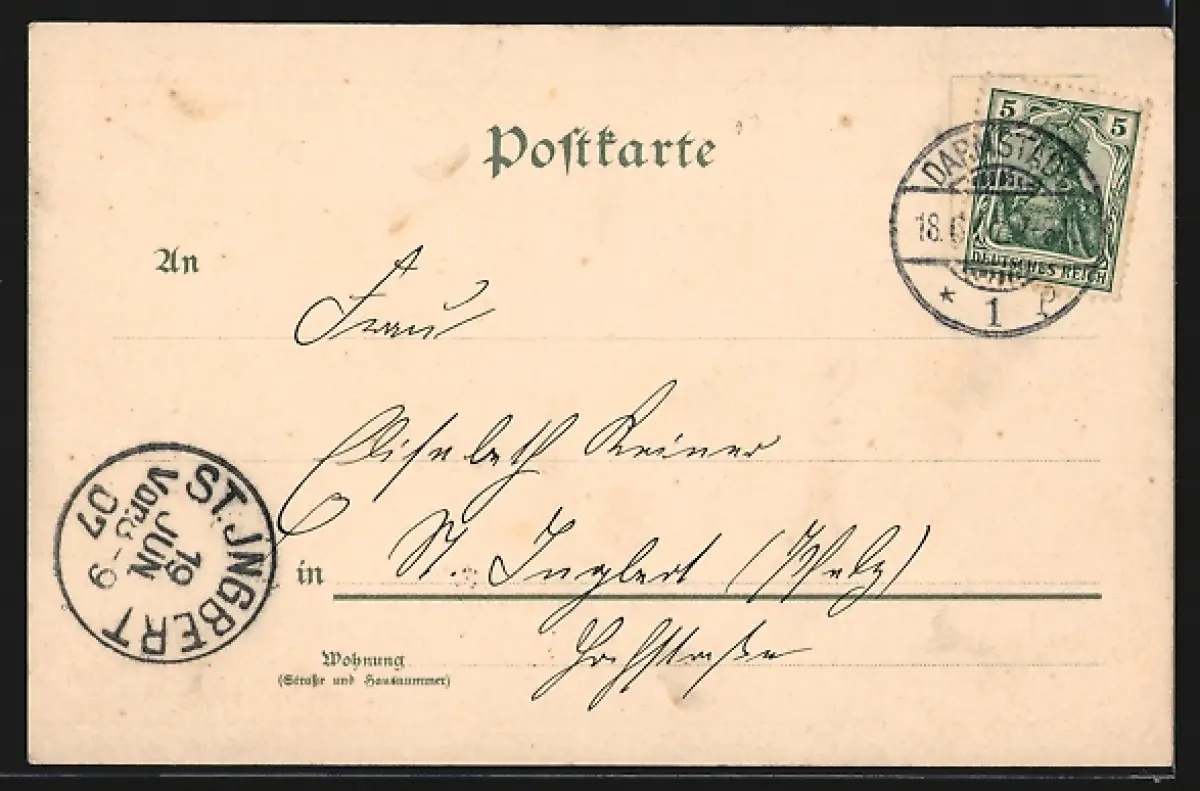 Postkarte
5 5
DEUTSCHES REICH
DARMSTADT
18.6
* 1 P
An
Frau
Elisabeth Reiner
in St. Ingbert (Pfalz)
Wohnung
(Straße und Hausnummer)
ST. JNGBERT
19
JUN
Vor. 8-9
07